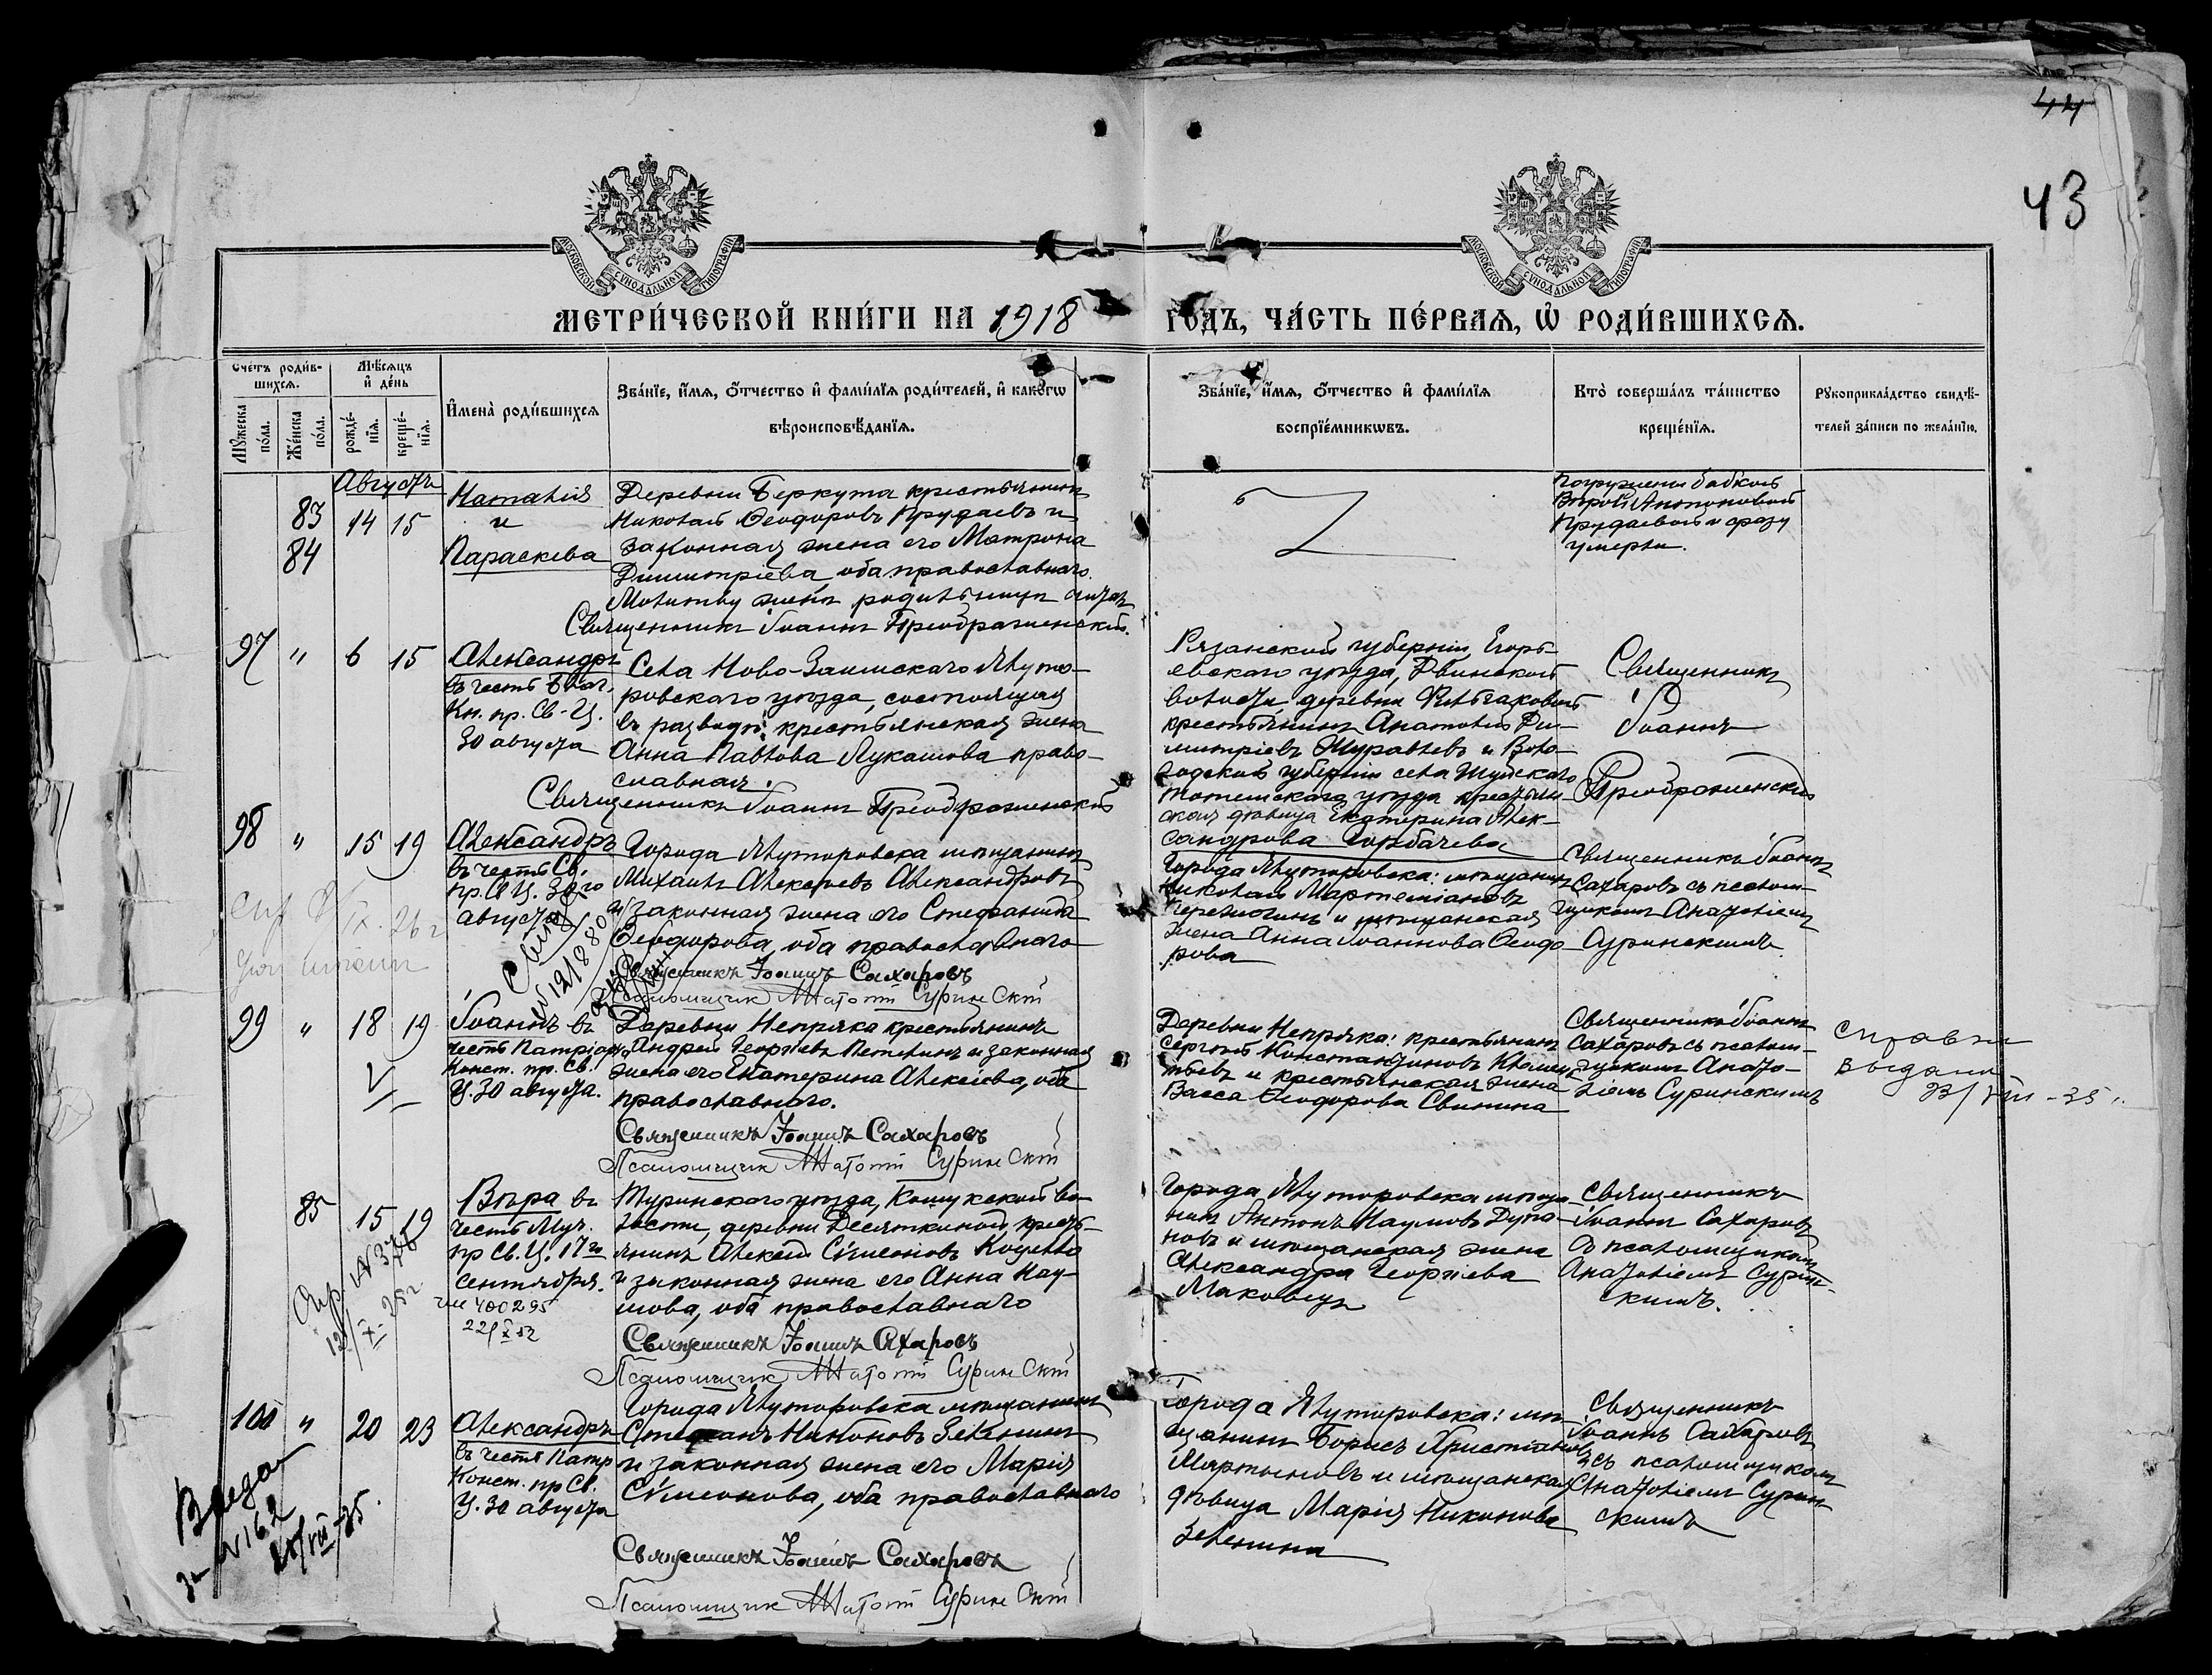 44
43
МОСКОВСКОЙ СУНОДАЛЬНОЙ ТИПОГРАФІИ
МОСКОВСКОЙ СУНОДАЛЬНОЙ ТИПОГРАФІИ
МЕТРИ́ЧЕСКОЙ КНИ́ГИ НА 1918
ГОДЪ, ЧА́СТЬ ПЕ́РВАЯ, Ѡ РОДИ́ВШИХСЯ.
Счетъ родив-
шихся.
Мужеска
пола.
Женска
пола.
Мѣсяцъ
и день
рожде-
нія.
креще-
нія.
Имена родившихся
Званіе, имя, отчество и фамилія родителей, и какогω
вѣроисповѣданія.
Званіе, имя, отчество и фамилія
воспріемникωвъ.
Кто совершалъ таинство
крещенія.
Рукоприкладство свидѣ-
телей записи по желанію.
Августъ
83
84
14 15
Наталія
и
Параскева
Деревни Беркута крестьянинъ
Николай Ѳеодоровъ Прудаевъ и
законная жена его Матрона
Димитріева, оба православнаго.
Молитву женѣ родильницѣ читалъ
Священникъ Іоаннъ Преображенскій.
Погружены бабкой
Вѣрой Антоновой
Прудаевой и сразу
умерли.
97 " 6 15
Александръ
въ честь Благ.
Кн. пр. Св. Ц.
30 августа
Села Ново-Заимскаго Ялуто-
ровскаго уѣзда, состоящая
въ разводѣ крестьянская жена
Анна Павлова Лукашова право-
славная.
Священникъ Іоаннъ Преображенскій
Рязанской губерніи, Егорь-
евскаго уѣзда, Двинской
волости, деревни
крестьянинъ Анатолій Ди-
митріевъ Журавлевъ и Воло-
годской губерніи села Шуйскаго
Тотемскаго уѣзда крестьян-
ская дѣвица Екатерина Алек-
сандрова Горбачева
Священникъ
Іоаннъ
Преображенскій
98 " 15 19
Александръ
въ честь Св.
пр. Св Ц. 30го
августа
Города Ялуторовска мѣщанинъ
Михаилъ Алексѣевъ Александровъ
и законная жена его Стефанида
Ѳеодорова, оба православнаго
Священникъ Іоаннъ Сахаровъ
Псаломщик Анатолій Суринскій
Города Ялуторовска: мѣщанинъ
Николай Мартеміановъ
и мѣщанская
жена Анна Іоаннова Ѳеодо-
рова
Священникъ Іоаннъ
Сахаровъ съ псалом-
щикомъ Анатоліемъ
Суринскимъ.
IX. 26 г
99 " 18 19
Іоаннъ въ
честь Патріарх
Конст. пр. Св.
Ц. 30 августа.
Деревни Непряка крестьянинъ
Андрей Георгіевъ Петелинъ и законная
жена его Екатерина Алексіева, оба
православнаго.
Священникъ Іоаннъ Сахаровъ
Псаломщик Анатолій Суринскій
Деревни Непряка: крестьянинъ
Сергѣй Константиновъ Климен-
тьевъ и крестьянская жена
Васса Ѳеодорова Свинина
Священникъ Іоаннъ
Сахаровъ съ псалом-
щикомъ Анато-
ліемъ Суринскимъ
Справка
выдана
23/VIII-35 г.
85 15 19
Вѣра въ
честь Муч.
пр Св. Ц. 17го
сентября.
400295
22/X 52
Туринскаго уѣзда, Кошукской во-
лости, деревни Десяткиной, кресть-
янинъ Алексѣй Сѵмеоновъ
и законная жена его Анна Нау-
мова, оба православнаго
Священникъ Іоаннъ Сахаровъ
Псаломщик Анатолій Суринскій
Города Ялуторовска мѣща-
нинъ Антонъ Наумовъ
и мѣщанская жена
Александра Георгіева
Маковецъ
Священникъ
Іоаннъ Сахаровъ
съ псаломщикомъ
Анатоліемъ Сурин-
скимъ.
100 " 20 23
Александръ
въ честь Патр
Конст. пр Св.
Ц. 30 августа
Города Ялуторовска мѣщанинъ
Стефанъ Никоновъ Зеленинъ
и законная жена его Марія
Сѵмеонова, оба православнаго
Священникъ Іоаннъ Сахаровъ
Псаломщик Анатолій Суринскій
Города Ялуторовска: мѣ-
щанинъ Борисъ Христіановъ
Мартыновъ и мѣщанская
дѣвица Марія Никонова
Зеленина
Священникъ
Іоаннъ Сахаровъ
съ псаломщикомъ
Анатоліемъ Сурин-
скимъ
Выдан
за №162